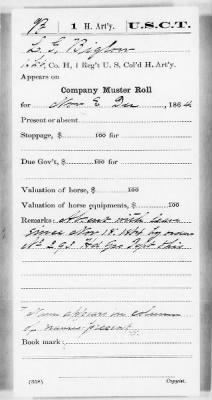 B | 1 H. Art'y. | U.S.C.T.
L. G. Bigelow
Co. H, 1 Reg't U. S. Col'd H. Art'y.
Appears on
Company Muster Roll
for Nov & Dec, 1864
Present or absent
Stoppage, $ 100 for
Due Gov't, $ 100 for
Valuation of horse, $ 100
Valuation of horse equipments, $ 100
Remarks: Absent with leave
since Nov 18, 1864 by order
No 291 Hd Qrs Dept
Name appears on column
of names present
Book mark:
(358) Copyist.